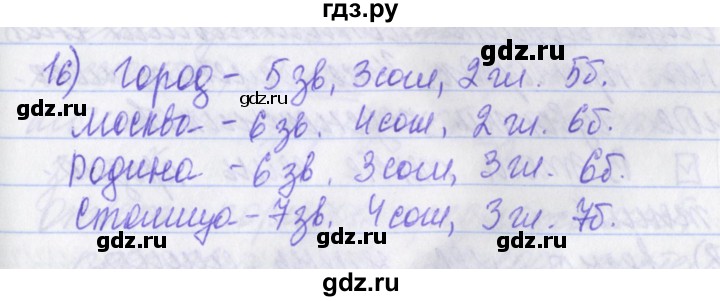 гдз.ру
16) Город - 5 зв, 3 согл, 2 гл. 5б.
gdz.ru gdz.ru
Москва - 6 зв. 4 согл, 2 гл. 6б.
gdz.ru gdz.ru
Родина - 6 зв. 3 согл, 3 гл. 6б.
Столица - 7 зв. 4 согл, 3 гл. 7б.
gdz.ru gdz.ru
gdz.ru